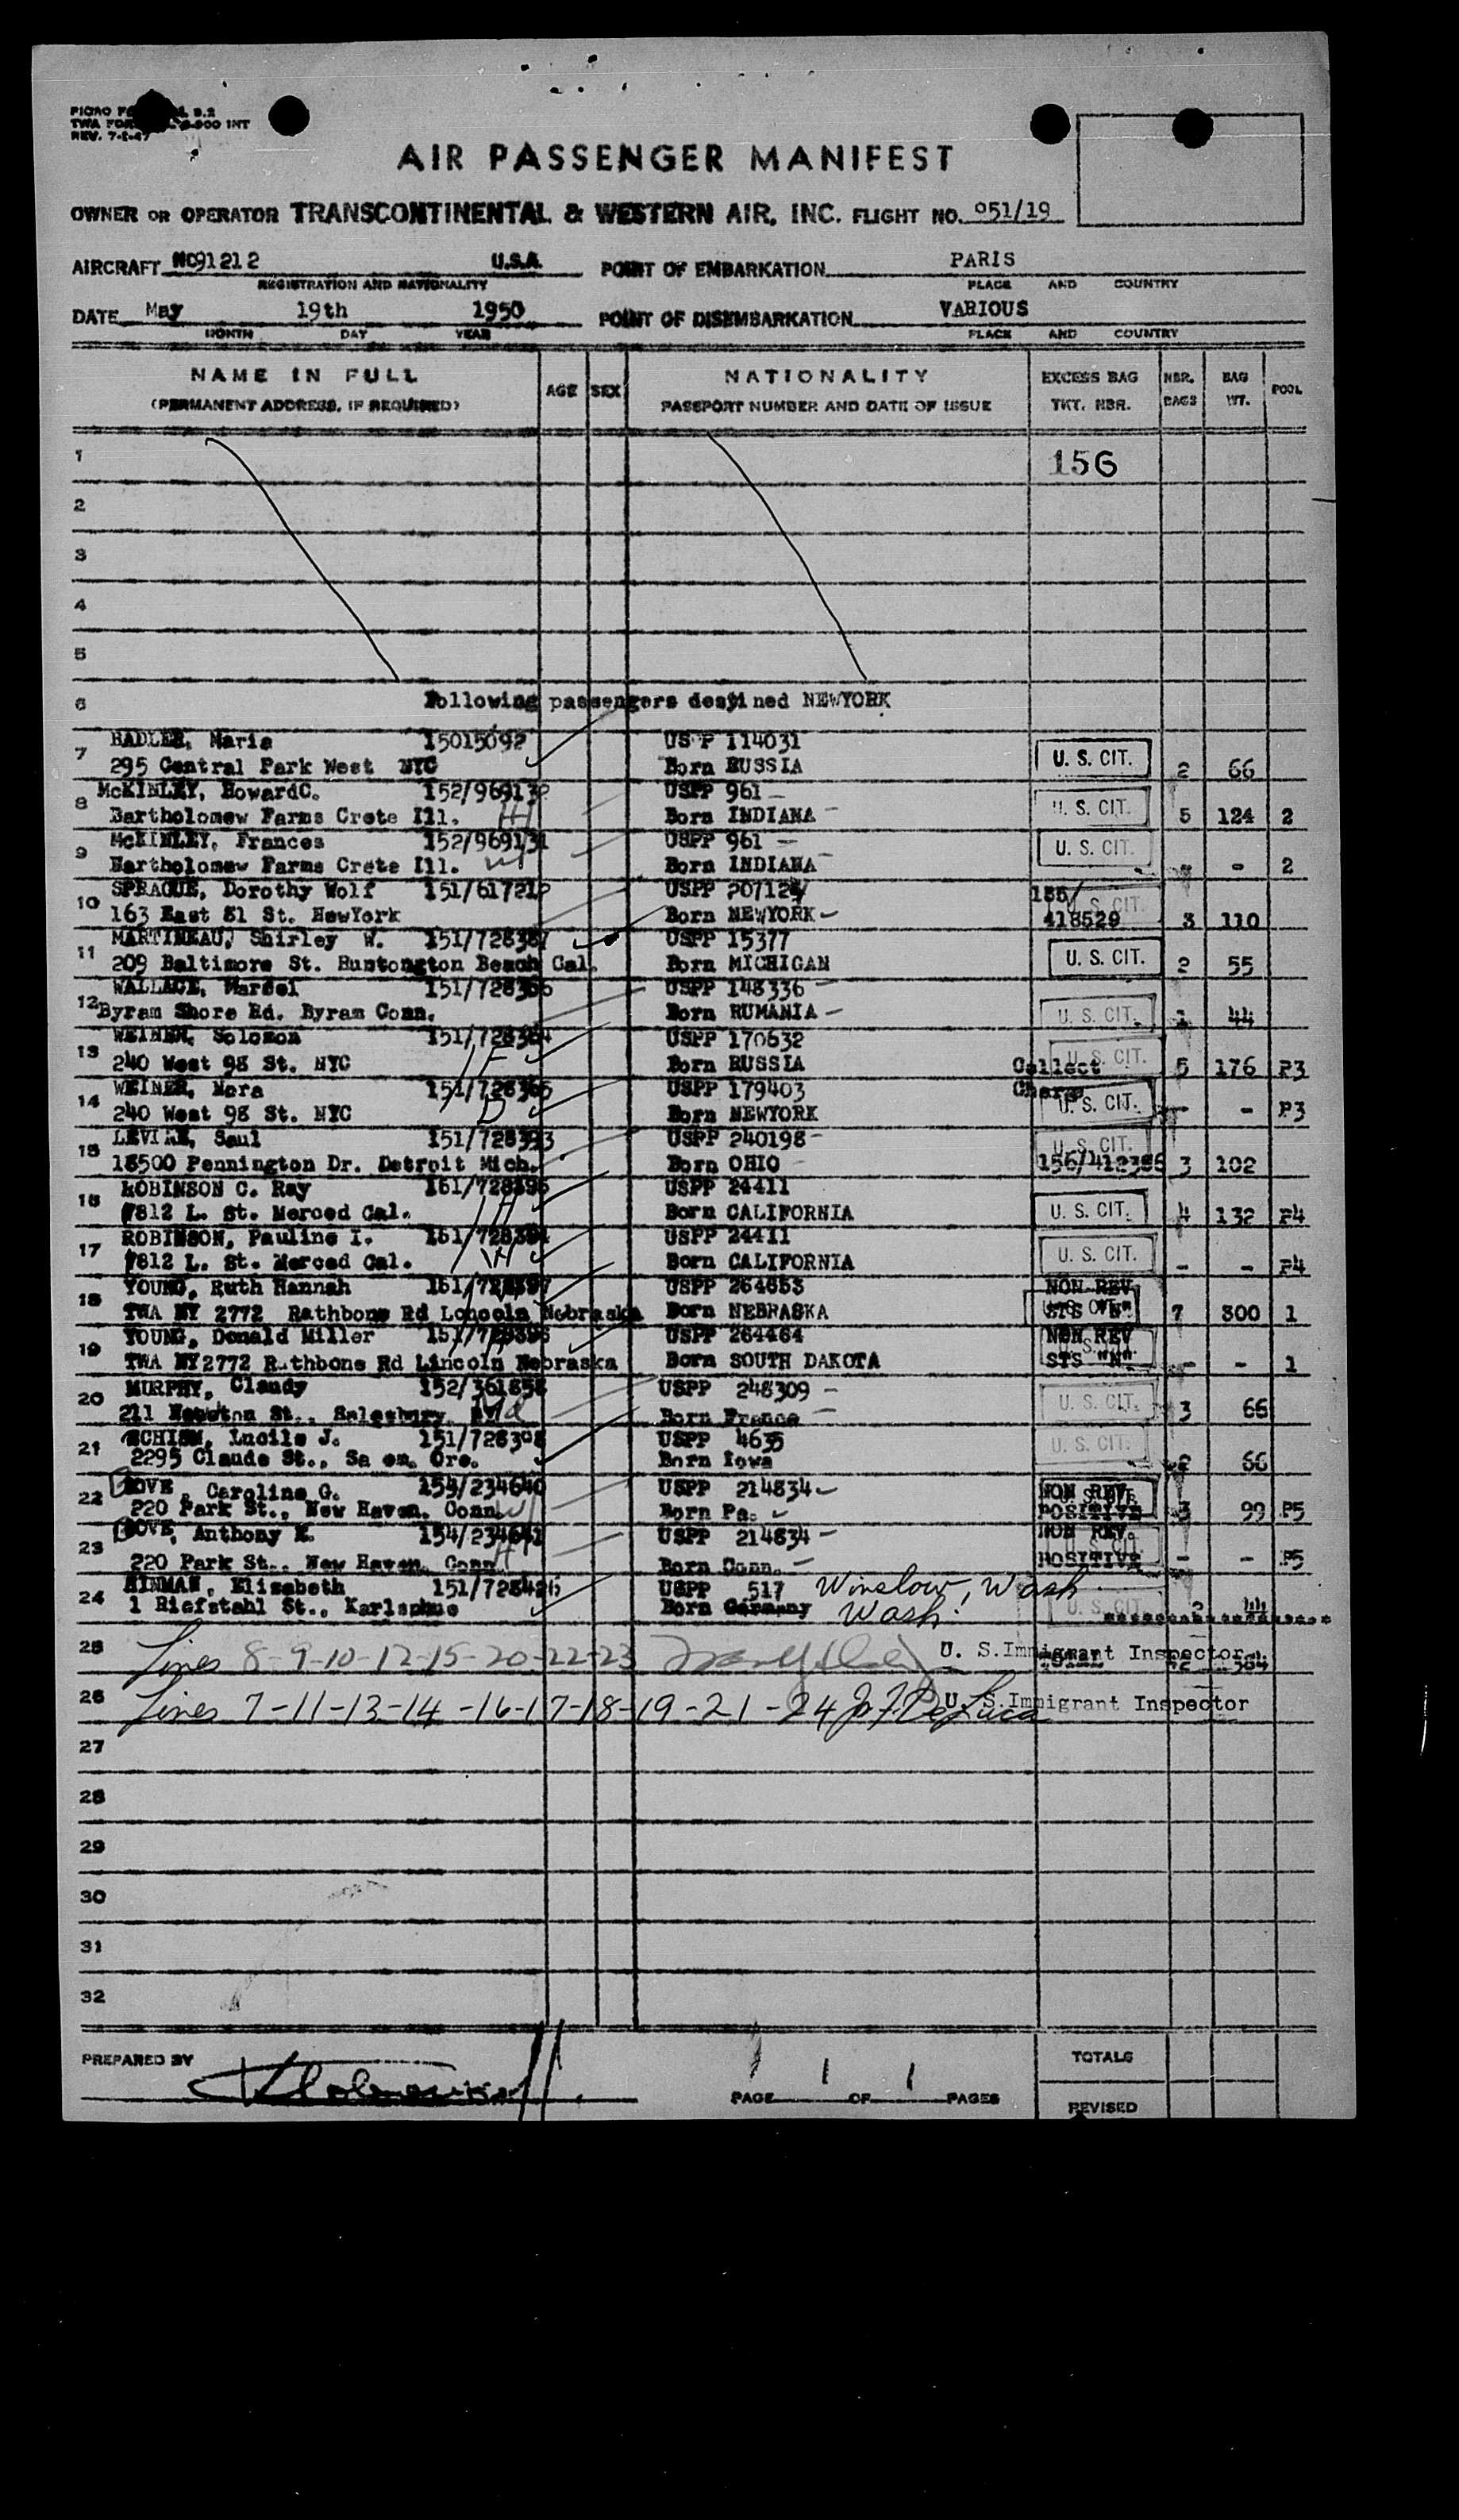 REV. 7-1-47
AIR PASSENGER MANIFEST
OWNER OR OPERATOR TRANSCONTINENTAL & WESTERN AIR, INC. FLIGHT NO. 051/19
AIRCRAFT NC91212 U.S.A. POINT OF EMBARKATION PARIS
REGISTRATION AND NATIONALITY PLACE AND COUNTRY
DATE May 19th 1950 POINT OF DISEMBARKATION VARIOUS
MONTH DAY YEAR PLACE AND COUNTRY
NAME IN FULL AGE SEX NATIONALITY EXCESS BAG NBR. BAG POOL
(PERMANENT ADDRESS, IF REQUIRED) PASSPORT NUMBER AND DATE OF ISSUE TKT. NBR. BAGS WT.
1 156
2
3
4
5
6 Following passengers destined NEWYORK
7 Maria 15015092 USPP 114031
295 Central Park West NYC Born RUSSIA U. S. CIT. 2 66
8 McKINLEY, HowardC. 152/969132 USPP 961
Bartholomew Farms Crete Ill. H Born INDIANA U. S. CIT. 5 124 2
9 McKINLEY, Frances 152/969131 USPP 961
Bartholomew Farms Crete Ill. W Born INDIANA U. S. CIT. - - 2
10 SPRAGUE, Dorothy Wolf 151/617212 USPP
163 East 81 St. NewYork Born NEWYORK U. S. CIT. 418529 3 110
11 MARTINEAU, Shirley W. 151/728387 USPP 15377
209 Baltimore St. Huntongton Beach Cal. Born MICHIGAN U. S. CIT. 2 55
12 WALLACE, USPP 148336
Byram Shore Rd. Byram Conn. Born RUMANIA U. S. CIT. 1 44
13 WEINER, Solomon 151/728364 USPP 170632
240 West 98 St. NYC Born RUSSIA Collect U. S. CIT. 5 176 P3
14 WEINER, Nora 151/728365 USPP 179403
240 West 98 St. NYC Born NEWYORK U. S. CIT. - - P3
15 LEVINE, Saul 151/728393 USPP 240198
18500 Pennington Dr. Detroit Mich. Born OHIO U. S. CIT. 3 102
16 ROBINSON C. Ray USPP 24411
1812 L. St. Merced Cal. H Born CALIFORNIA U. S. CIT. 4 132 P4
17 ROBINSON, Pauline I. USPP 24411
1812 L. St. Merced Cal. W Born CALIFORNIA U. S. CIT. - - P4
18 YOUNG, Ruth Hannah USPP NON REV
TWA NY 2772 Rathbone Rd Loncoln Nebraska Born NEBRASKA STS "N" 7 300 1
19 YOUNG, Donald Miller USPP 264464 NON REV
TWA NY2772 Rathbone Rd Lincoln Nebraska Born SOUTH DAKOTA STS "N" - - 1
20 MURPHY, Claudy 152/361858 USPP 248309
211 Newton St., Salesbury, Md Born France U. S. CIT. 3 66
21 SCHISM, Lucile J. 151/728308 USPP 4635
2295 Claude St., Sa em, Ore. Born Iowa U. S. CIT. 2 66
22 Caroline G. USPP 214834 NON REV.
220 Park St., New Haven, Conn. W Born Pa. POSITIVE 3 99 P5
23 Anthony USPP 214834 NON REV.
220 Park St., New Haven, Conn H Born Conn. POSITIVE - - P5
24 HINMAN, Elizabeth 151/728426 USPP 517 Winslow, Wash
1 Riefstahl St., Karlsphue Born Germany Wash. U. S. CIT 2 44
25 Lines 8-9-10-12-15-20-22-23 U. S. Immigrant Inspector
26 Lines 7-11-13-14-16-17-18-19-21-24 Jo. F. DeLuca U. S. Immigrant Inspector
27
28
29
30
31
32
PREPARED BY TOTALS
PAGE 1 OF 1 PAGES
REVISED